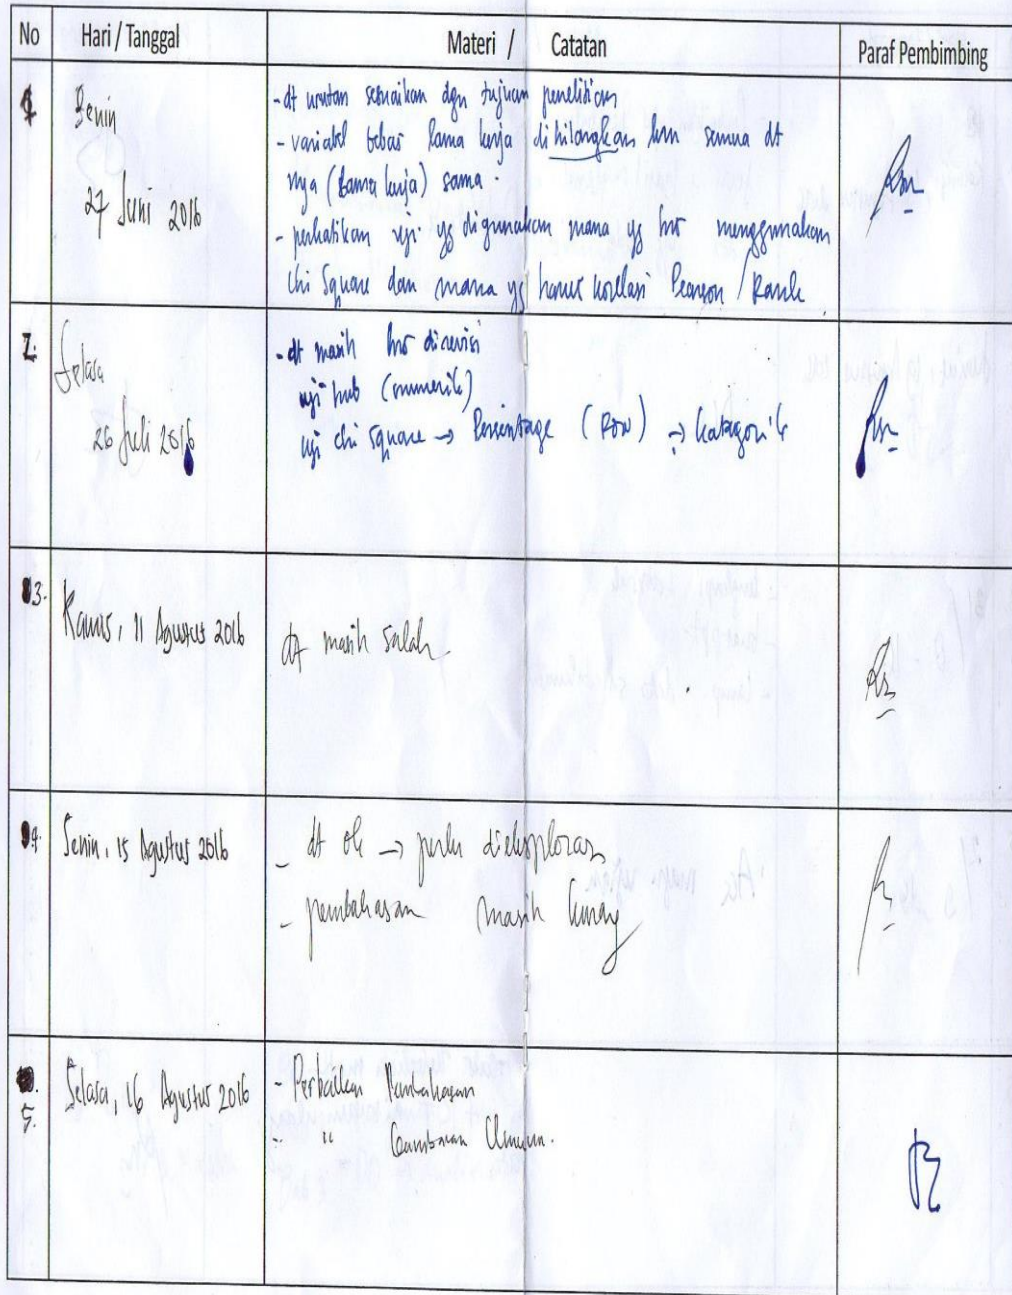 No Hari / Tanggal Materi / Catatan Paraf Pembimbing
1. Senin
27 Juni 2016
- dt urutan sesuaikan dgn tujuan penelitian
- variabel bebas lama kerja dihilangkan krn semua dt
nya (lama kerja) sama.
- perhatikan uji yg digunakan mana yg hrs menggunakan
Chi Square dan mana yg harus korelasi Pearson / Rank
2. Selasa
26 Juli 2016
- dt masih hrs direvisi
uji hub (numerik)
uji chi square → Persentage (Row) → katagorik
3. Kamis, 11 Agustus 2016
dt masih salah
4. Senin, 15 Agustus 2016
- dt ok → perlu dieksplorasi
- pembahasan masih kurang
5. Selasa, 16 Agustus 2016
- Perbaikan Pembahasan
- " Gambaran Umum.